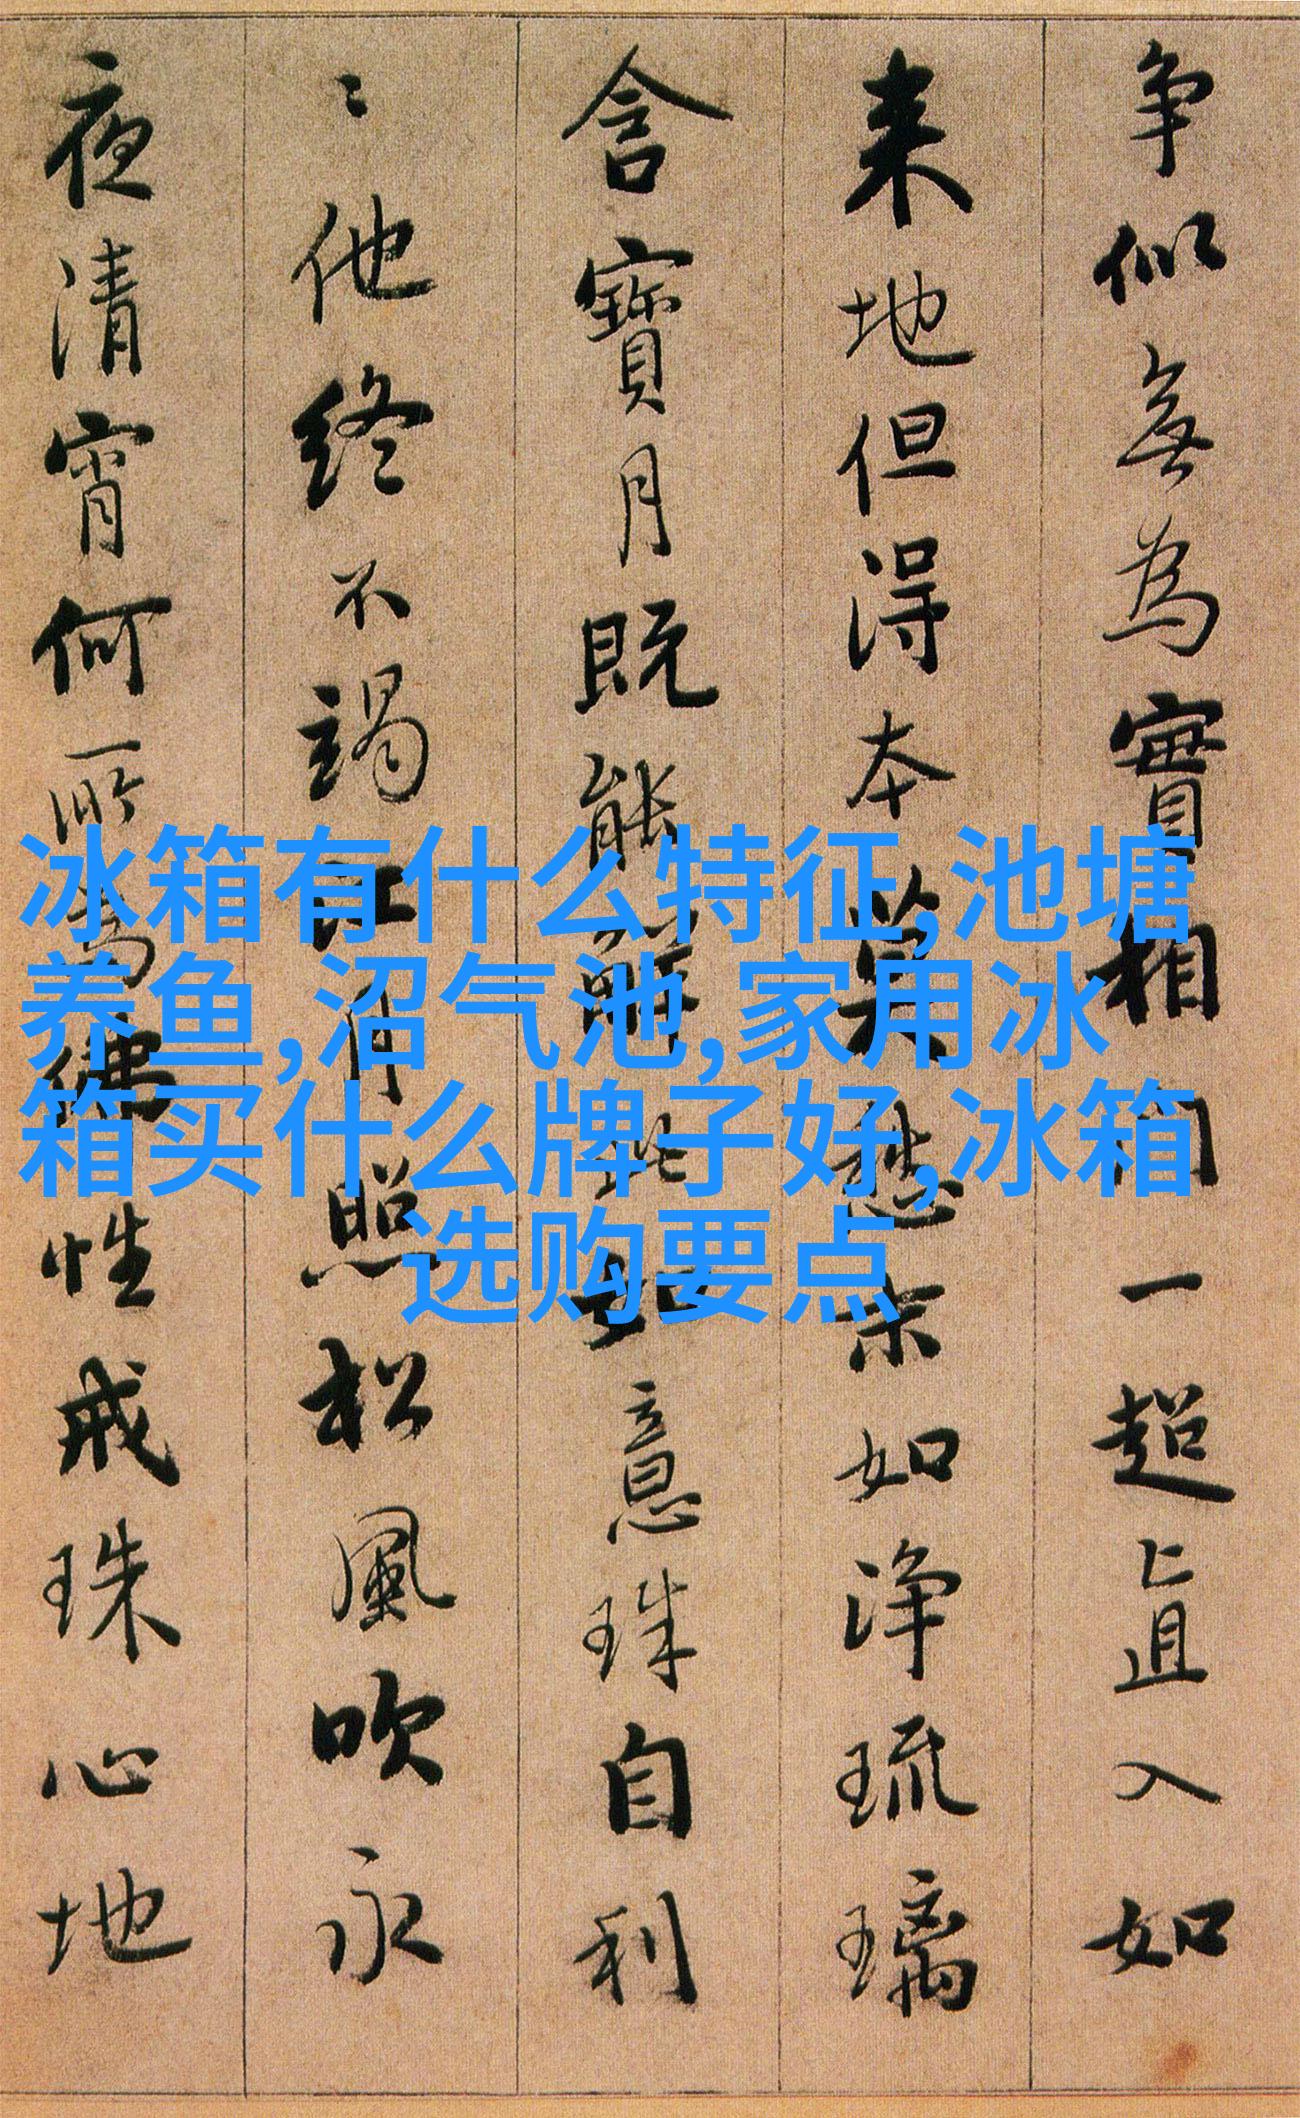 争似無為實相門一超直入如
来地但得本莫愁末如淨琉璃
含寶月既能解此如意珠自利
〻他終不竭江月照松風吹永
夜清宵何所為佛性戒珠心地
冰箱有什么特征,池塘
养鱼,沼气池,家用冰
箱买什么牌子好,冰箱
选购要点